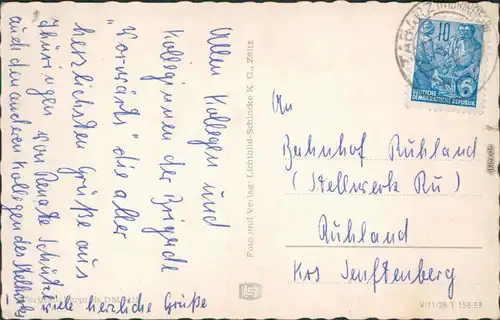 Allen Kollegen und
Kolleginnen der Brigade
"Vorwärts" die aller
herzlichsten Grüße aus
Thüringen von Renate Schütz
auch den anderen Kollegen des Stellwerks
viele herzliche Grüße
Foto und Verlag: Lichtbild-Schincke K.-G., Zeitz
TABARZ (THÜRINGER
10
6
5
DEUTSCHE
DEMOKRATISCHE REPUBLIK
An
Bahnhof Ruhland
(Stellwerk Ru)
Ruhland
Krs Senftenberg
V/11/28 T 158-57